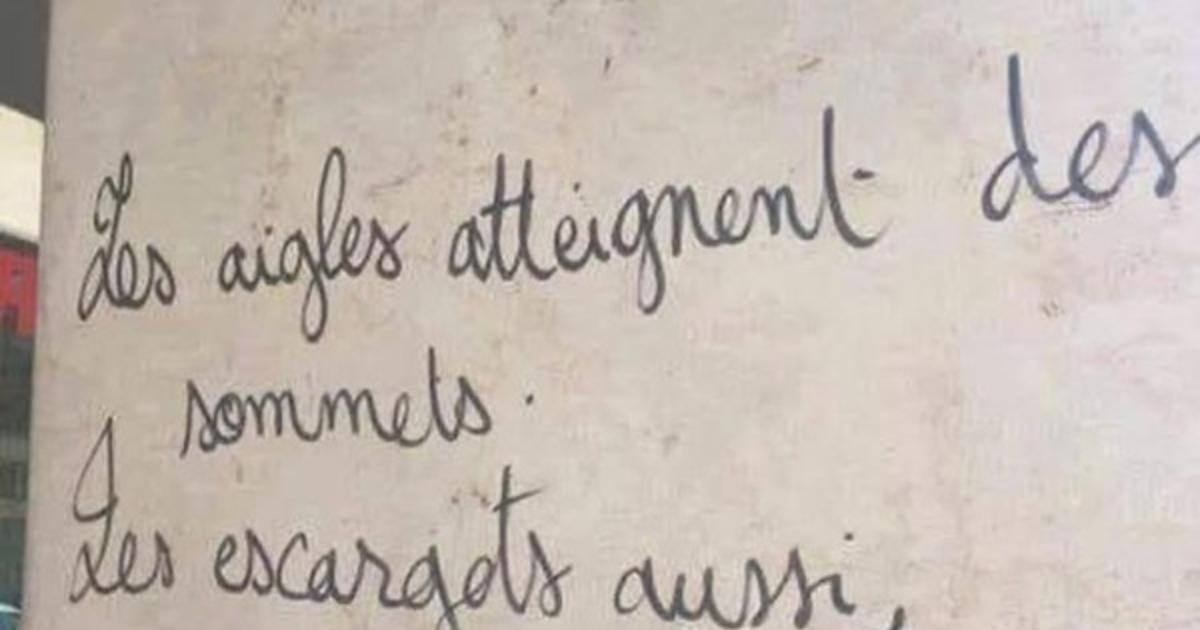 Les aigles atteignent des
sommets.
Les escargots aussi,